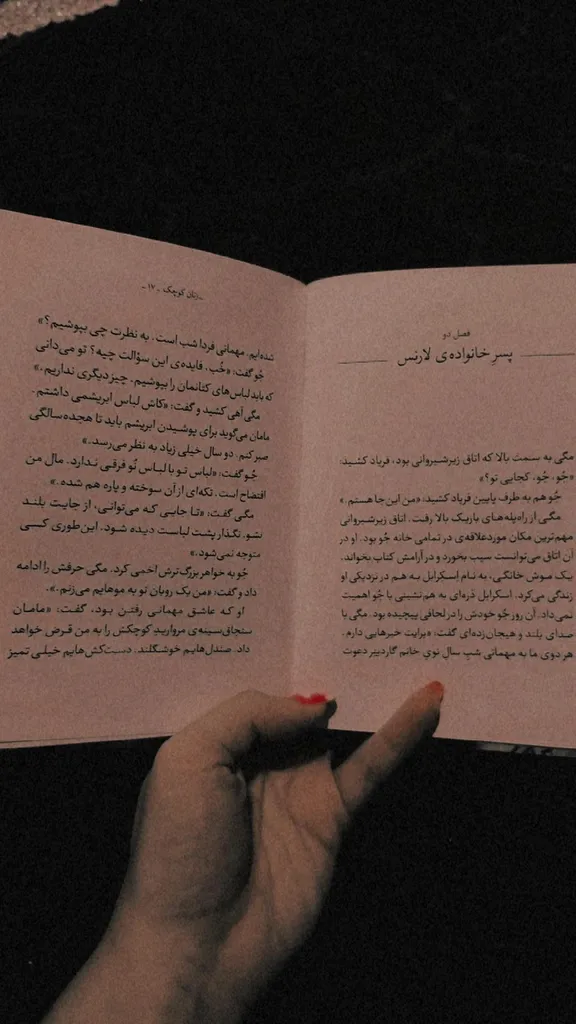 فصل دو
پسرِ خانواده‌ی لارنس
مگی به سمت بالا که اتاق زیرشیروانی بود، فریاد کشید:
«جُو، جُو، کجایی تو؟»
جُو هم به طرف پایین فریاد کشید: «من این‌جا هستم.»
مگی از راه‌پله‌های باریک بالا رفت. اتاق زیرشیروانی
مهم‌ترین مکان موردعلاقه‌ی در تمامی خانه جُو بود. او در
آن اتاق می‌توانست سیب بخورد و در آرامش کتاب بخواند.
یک موش خانگی، به نام اسکرابل به هم در نزدیکی او
زندگی می‌کرد. اسکرابل ذره‌ای به هم‌نشینی با جُو اهمیت
نمی‌داد. آن روز جُو خودش را در لحافی پیچیده بود. مگی با
صدای بلند و هیجان‌زده‌ای گفت: «برایت خبرهایی دارم.
هر دوی ما به مهمانی شبِ سالِ نویِ خانم گاردینر دعوت
ـ زنان کوچک ـ ۱۷ ـ
شده‌ایم. مهمانی فردا شب است. به نظرت چی بپوشیم؟»
جُو گفت: «خُب، فایده‌ی این سؤالت چیه؟ تو می‌دانی
که باید لباس‌های کتانمان را بپوشیم. چیز دیگری نداریم.»
مگی آهی کشید و گفت: «کاش لباس ابریشمی داشتم.
مامان می‌گوید برای پوشیدن ابریشم باید تا هجده‌سالگی
صبر کنم. دو سال خیلی زیاد به نظر می‌رسد.»
جُو گفت: «لباس تو با لباس نُو فرقی ندارد. مال من
افتضاح است. تکه‌ای از آن سوخته و پاره هم شده.»
مگی گفت: «تا جایی که می‌توانی، از جایت بلند
نشو. نگذار پشت لباست دیده شود. این‌طوری کسی
متوجه نمی‌شود.»
جُو به خواهر بزرگ‌ترش اخمی کرد. مگی حرفش را ادامه
داد و گفت: «من یک روبان تو به موهایم می‌زنم.».
او که عاشق مهمانی رفتن بود، گفت: «مامان
سنجاق‌سینه‌ی مرواریدِ کوچکش را به من قرض خواهد
داد. صندل‌هایم خوشگلند. دست‌کش‌هایم خیلی تمیز